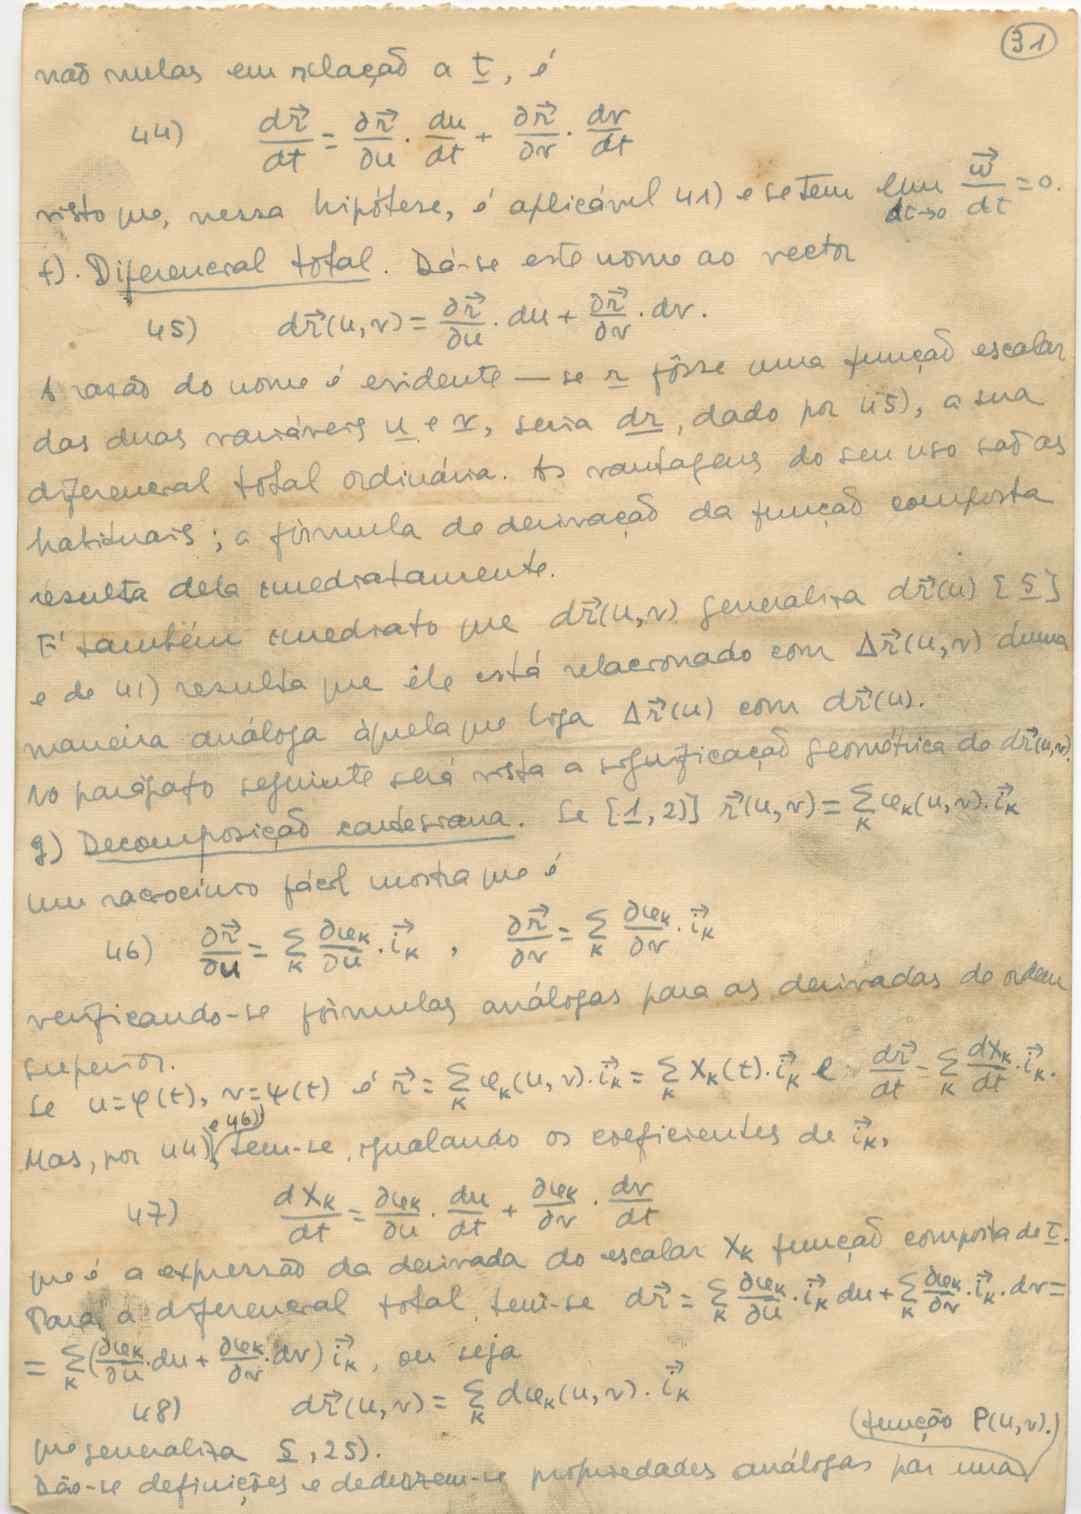 31
não nulas em relação a t, é
44) dr⃗/dt = ∂r⃗/∂u · du/dt + ∂r⃗/∂v · dv/dt
visto que, nessa hipótese, é aplicável 41) e se tem lim dt→0 ω⃗/dt = 0.
f). Diferencial total. Dá-se este nome ao vector
45) dr⃗(u,v) = ∂r⃗/∂u · du + ∂r⃗/∂v · dv.
A razão do nome é evidente — se r fôsse uma função escalar
das duas variáveis u e v, seria dr, dado por 45), a sua
diferencial total ordinária. As vantagens do seu uso são as
habituais; a fórmula de derivação da função composta
resulta dela imediatamente.
E' também imediato que dr⃗(u,v) generaliza dr⃗(u) [5]
e de 41) resulta que êle está relacionado com Δr⃗(u,v) duma
maneira análoga àquela que liga Δr⃗(u) com dr⃗(u).
No parágrafo seguinte será vista a significação geométrica de dr⃗(u,v).
g) Decomposição cartesiana. Se [1,2)] r⃗(u,v) = Σₖ φₖ(u,v)·i⃗ₖ
um raciocínio fácil mostra que é
46) ∂r⃗/∂u = Σₖ ∂φₖ/∂u · i⃗ₖ , ∂r⃗/∂v = Σₖ ∂φₖ/∂v · i⃗ₖ
verificando-se fórmulas análogas para as derivadas de ordem
superior.
Se u=φ(t), v=ψ(t) é r⃗ = Σₖ φₖ(u,v)·i⃗ₖ = Σₖ Xₖ(t)·i⃗ₖ e dr⃗/dt = Σₖ dXₖ/dt · i⃗ₖ.
Mas, por 44) e 46)) tem-se, igualando os coeficientes de i⃗ₖ,
47) dXₖ/dt = ∂φₖ/∂u · du/dt + ∂φₖ/∂v · dv/dt
que é a expressão da derivada do escalar Xₖ função composta de t.
Para a diferencial total tem-se dr⃗ = Σₖ ∂φₖ/∂u · i⃗ₖ du + Σₖ ∂φₖ/∂v · i⃗ₖ · dv =
= Σₖ (∂φₖ/∂u · du + ∂φₖ/∂v · dv) i⃗ₖ, ou seja
48) dr⃗(u,v) = Σₖ dφₖ(u,v) · i⃗ₖ
que generaliza 5, 25).
Dão-se definições e deduzem-se propriedades análogas par uma (função P(u,v).)